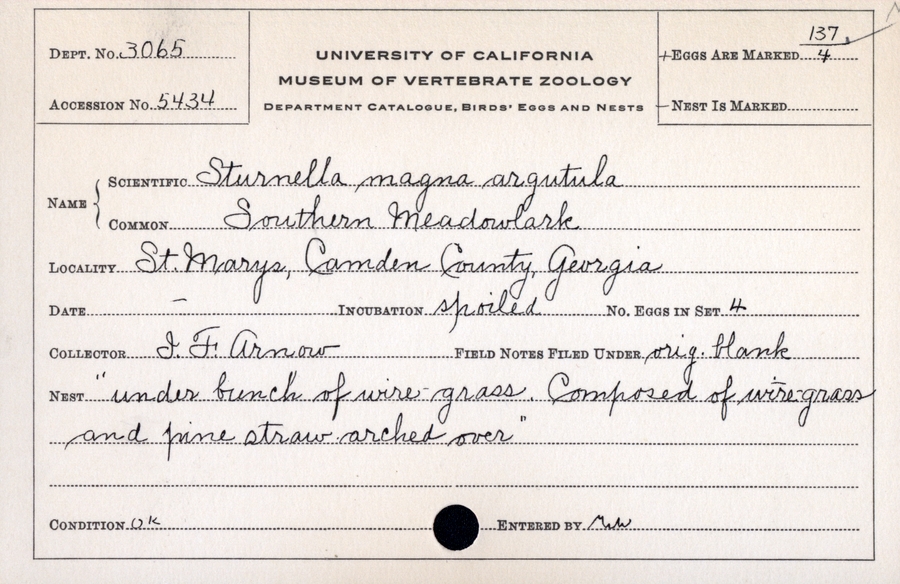 DEPT. No. 3065
ACCESSION No. 5434
UNIVERSITY OF CALIFORNIA
MUSEUM OF VERTEBRATE ZOOLOGY
DEPARTMENT CATALOGUE, BIRDS' EGGS AND NESTS
EGGS ARE MARKED 137/4
NEST IS MARKED
NAME { SCIENTIFIC Sturnella magna argutula
COMMON Southern Meadowlark
LOCALITY St. Marys, Camden County, Georgia
DATE - INCUBATION spoiled No. EGGS IN SET 4
COLLECTOR I. F. Arnow FIELD NOTES FILED UNDER orig. blank
NEST "under bunch of wire-grass. Composed of wire-grass
and pine straw arched over"
CONDITION OK ENTERED BY